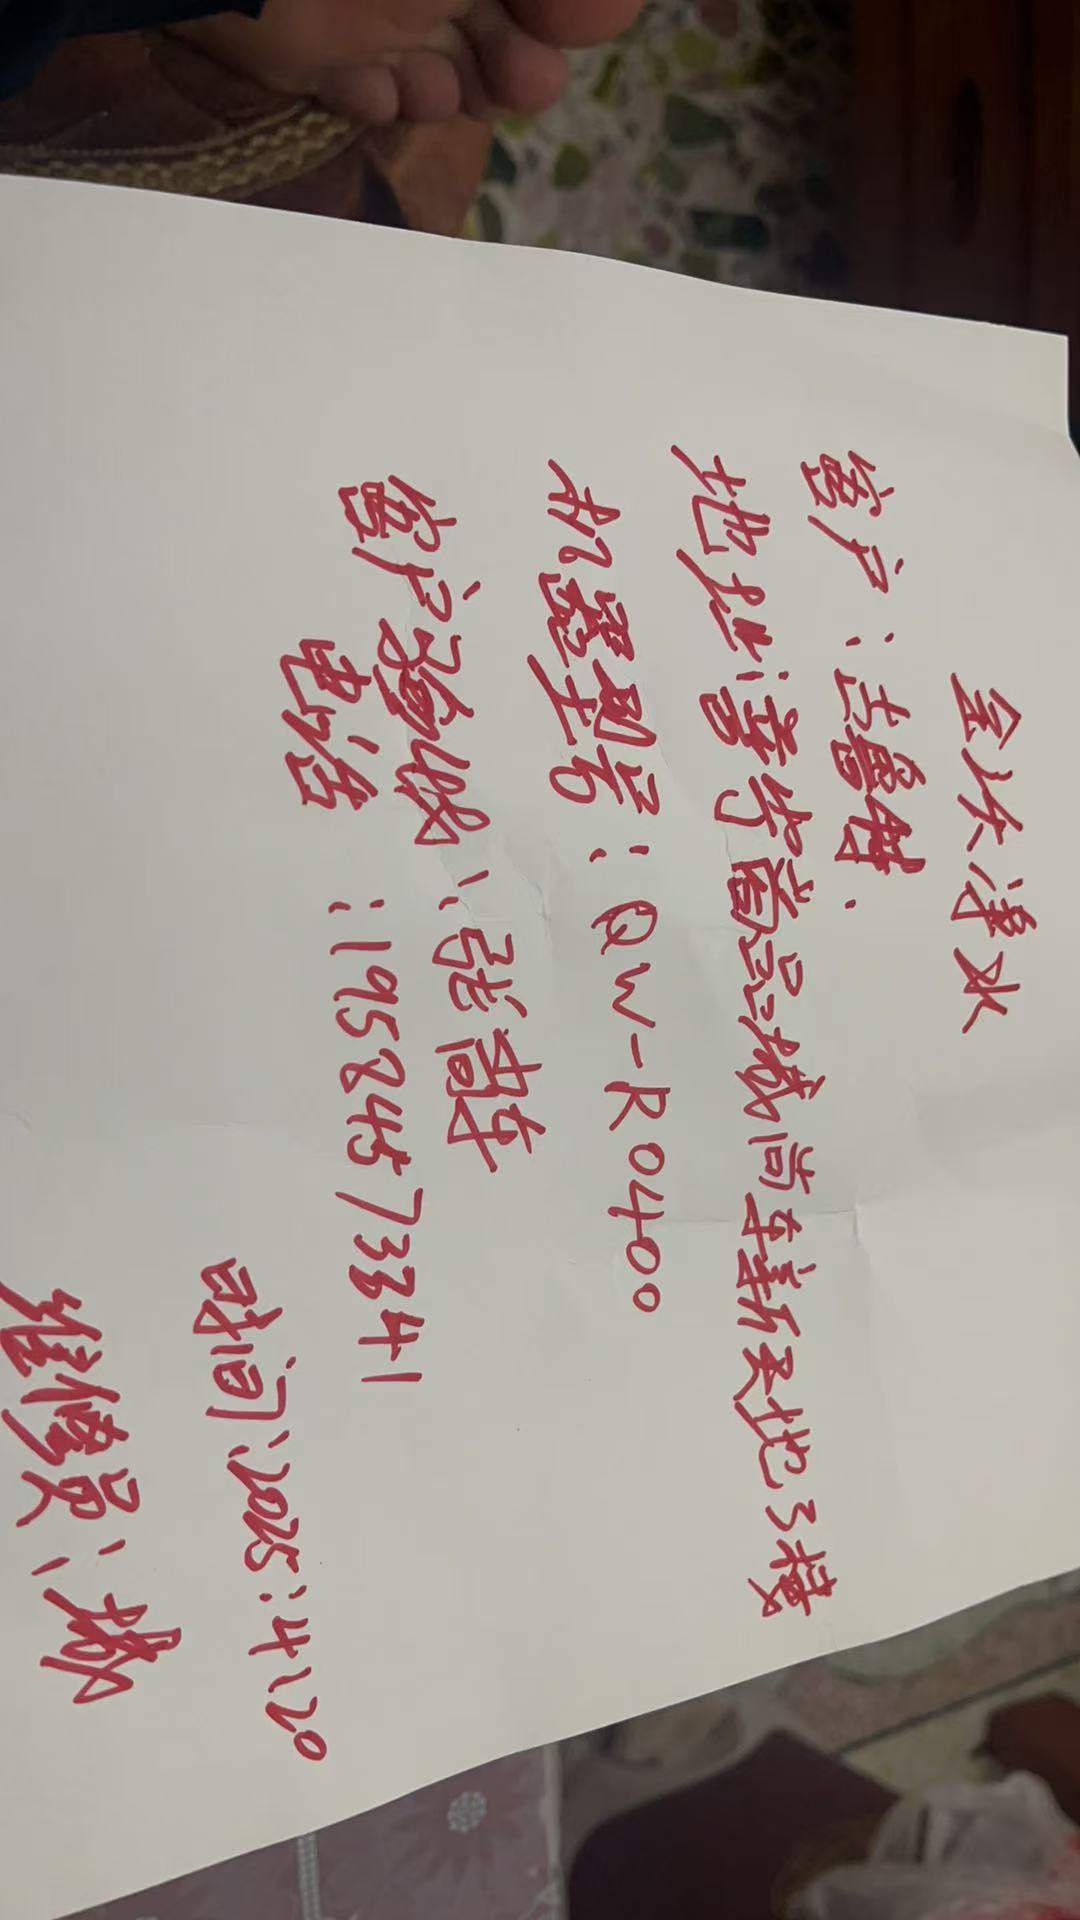 全次净水
客户：古鲁特.
地址：普宁尚品城尚车新天地3楼
机器型号：QW-R0400
客户验收：张尚车
电话：19584573341
时间：2025:4.20
维修员：